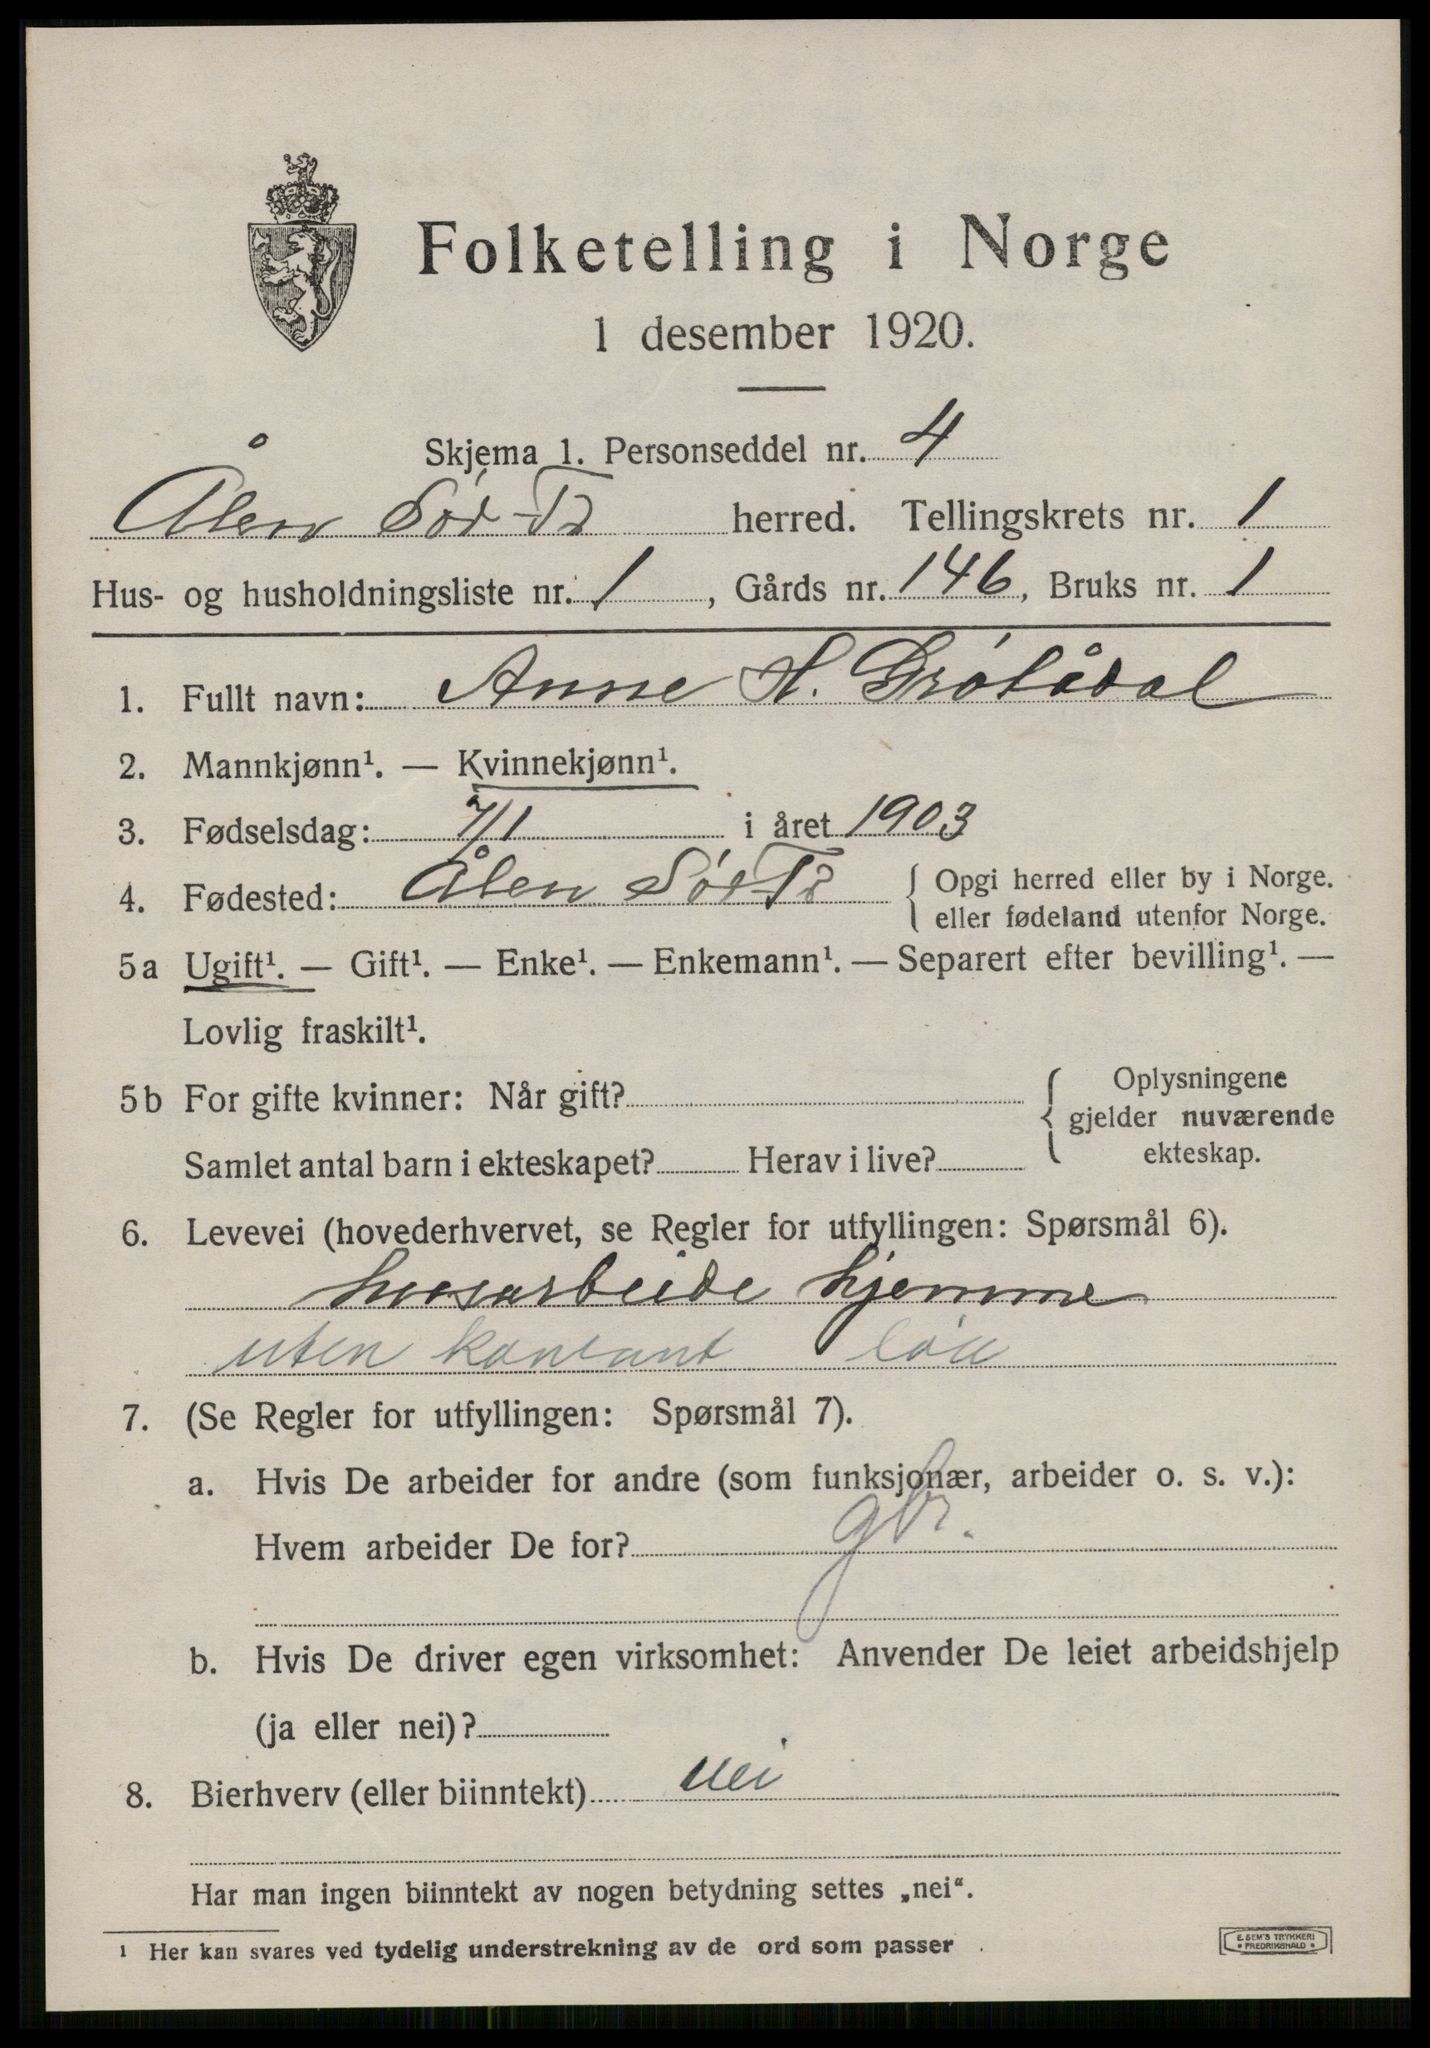 Folketelling i Norge
1 desember 1920.
Skjema 1. Personseddel nr. 4
Ålen Sör-Tr herred. Tellingskrets nr. 1
Hus- og husholdningsliste nr. 1, Gårds nr. 146, Bruks nr. 1
1. Fullt navn: Anne H. Drölådal
2. Mannkjønn¹. — Kvinnekjønn¹.
3. Fødselsdag: 7/1 i året 1903
4. Fødested: Ålen Sör Tr { Opgi herred eller by i Norge.
eller fødeland utenfor Norge.
5a Ugift¹. — Gift¹. — Enke¹. — Enkemann¹. — Separert efter bevilling¹. —
Lovlig fraskilt¹.
5b For gifte kvinner: Når gift? { Oplysningene
gjelder nuværende
Samlet antal barn i ekteskapet? Herav i live? ekteskap.
6. Levevei (hovederhvervet, se Regler for utfyllingen: Spørsmål 6).
husarbeide hjemme
uten kontant lön
7. (Se Regler for utfyllingen: Spørsmål 7).
a. Hvis De arbeider for andre (som funksjonær, arbeider o. s. v.):
Hvem arbeider De for? gbr.
b. Hvis De driver egen virksomhet: Anvender De leiet arbeidshjelp
(ja eller nei)?
8. Bierhverv (eller biinntekt) nei
Har man ingen biinntekt av nogen betydning settes „nei“.
1 Her kan svares ved tydelig understrekning av de ord som passer .
E. SEM'S TRYKKERI
• FREDRIKSHALD •